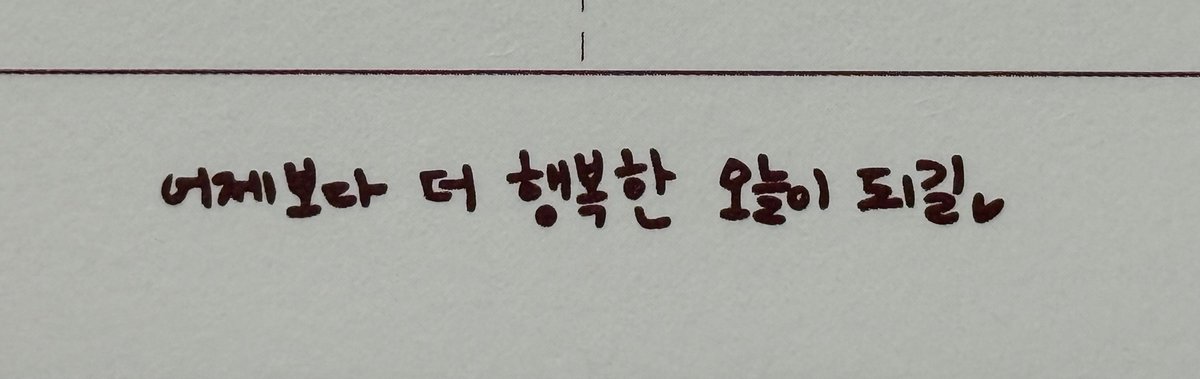 어제보다 더 행복한 오늘이 되길.